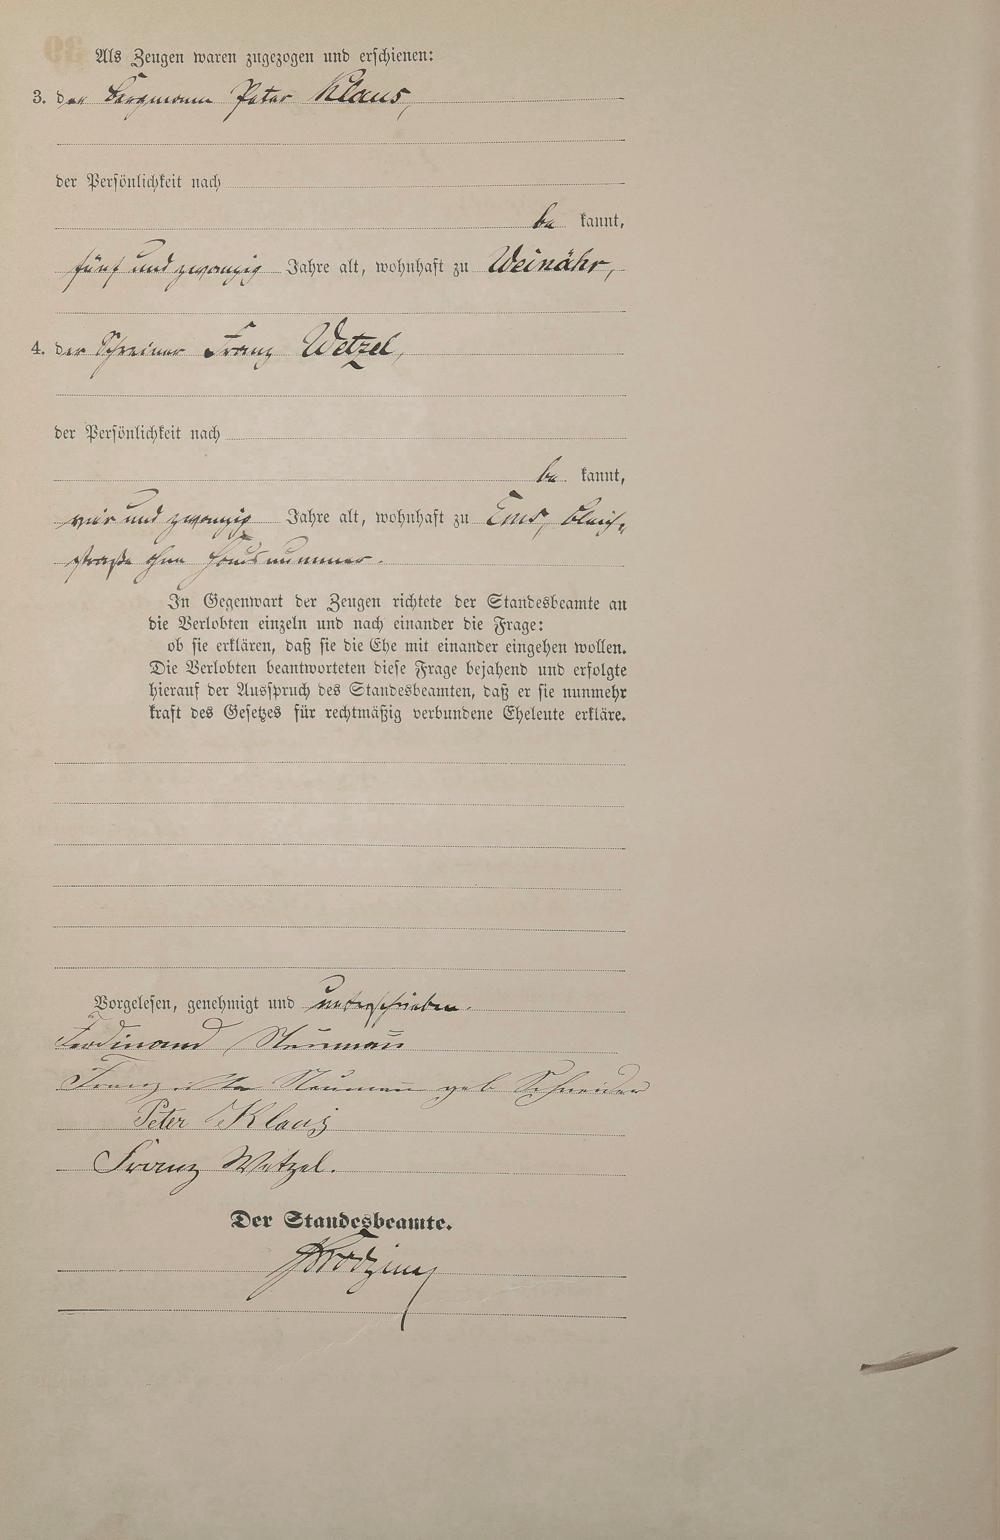 Als Zeugen waren zugezogen und erschienen:
3. der Bergmann Peter Klaus,
der Persönlichkeit nach
be kannt,
fünf und zwanzig Jahre alt, wohnhaft zu Weinähr,
4. der Schreiner Franz Wetzel,
der Persönlichkeit nach
be kannt,
vier und zwanzig Jahre alt, wohnhaft zu Ems, Bleich-
straße ohne Hausnummer.
In Gegenwart der Zeugen richtete der Standesbeamte an
die Verlobten einzeln und nach einander die Frage:
ob sie erklären, daß sie die Ehe mit einander eingehen wollen.
Die Verlobten beantworteten diese Frage bejahend und erfolgte
hierauf der Ausspruch des Standesbeamten, daß er sie nunmehr
kraft des Gesetzes für rechtmäßig verbundene Eheleute erkläre.
Vorgelesen, genehmigt und unterschrieben.
Ferdinand Neumann
Neumann geb Schneider
Peter Klaus
Franz Wetzel.
Der Standesbeamte.